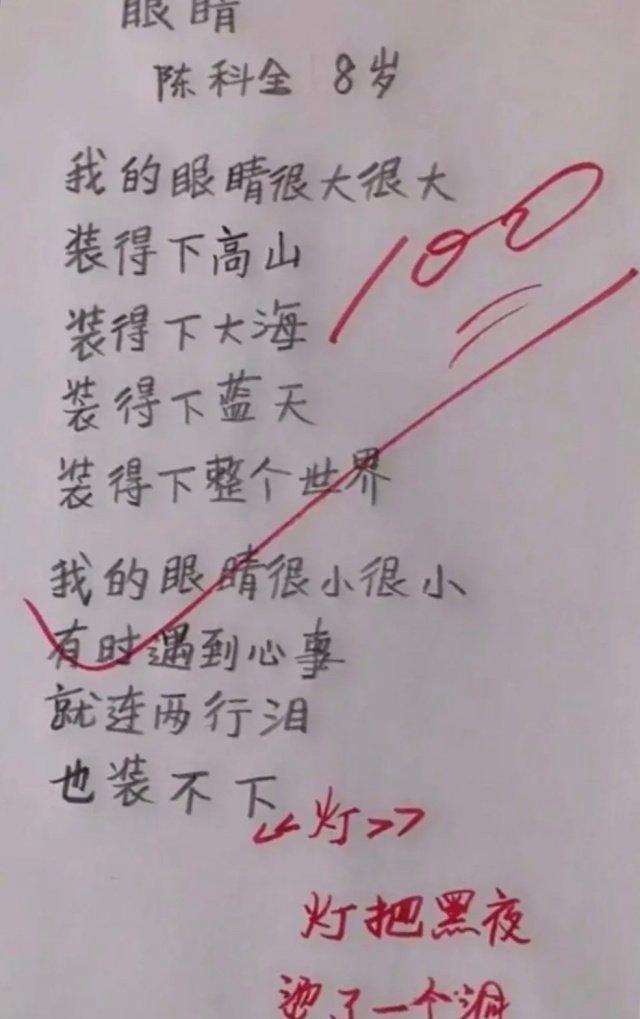 眼睛
陈科全 8岁
我的眼睛很大很大
装得下高山
装得下大海
装得下蓝天
装得下整个世界
100
我的眼睛很小很小
有时遇到心事
就连两行泪
也装不下
《灯》
灯把黑夜
烫了一个洞